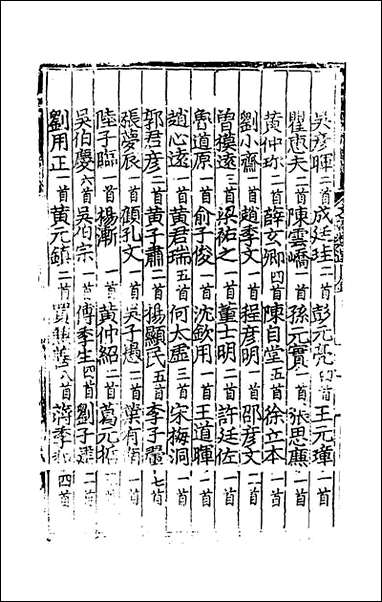 吳彥暉二首成廷珪二首彭元亮四首王元瑾一首
瞿惠夫一首陳雲嶠一首孫元實一首張思廉一首
黃仲珍二首薛玄卿四首陳自堂五首徐立本一首
劉小齋一首趙季文一首程彥明一首邵彥文一首
曾樸遠三首梁祐之一首董士明二首許廷佐一首
魯道原一首俞子俊一首沈歙用一首王道暉一首
趙心遠一首黃君瑞五首何太虛三首宋梅洞一首
郭君彥二首黃子肅二首楊顯民五首李子晷七首
張夢辰一首顧孔文一首吳子愚一首葉有一首
陸子臨一首楊漸一首黃仲紹二首葛元哲二首
吳伯慶六首吳伯宗一首傅季生四首劉子二首
劉用正一首黃元鎮二首八首季四首